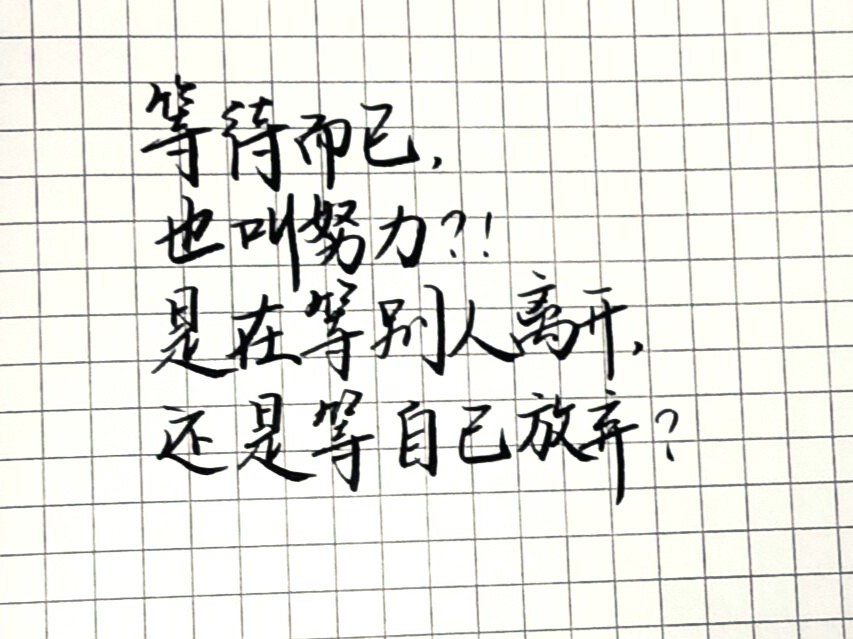 等待而已，
也叫努力？！
是在等别人离开，
还是等自己放弃？